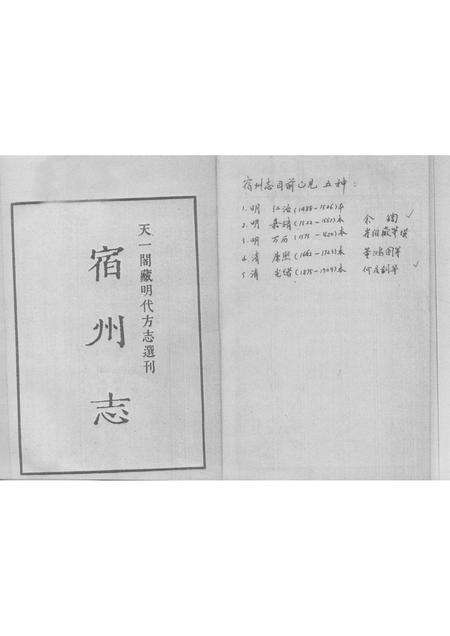 天一閣藏明代方志選刊
宿州志
宿州志目前已見五种：
1. 明 弘治(1488-1505)本
2. 明 嘉靖(1522-1566)本 余鍧 ✓
3. 明 万历(1573-1620)本
4. 清 康熙(1662-1722)本
5. 清 光绪(1875-1909)本 何庆钊等 ✓